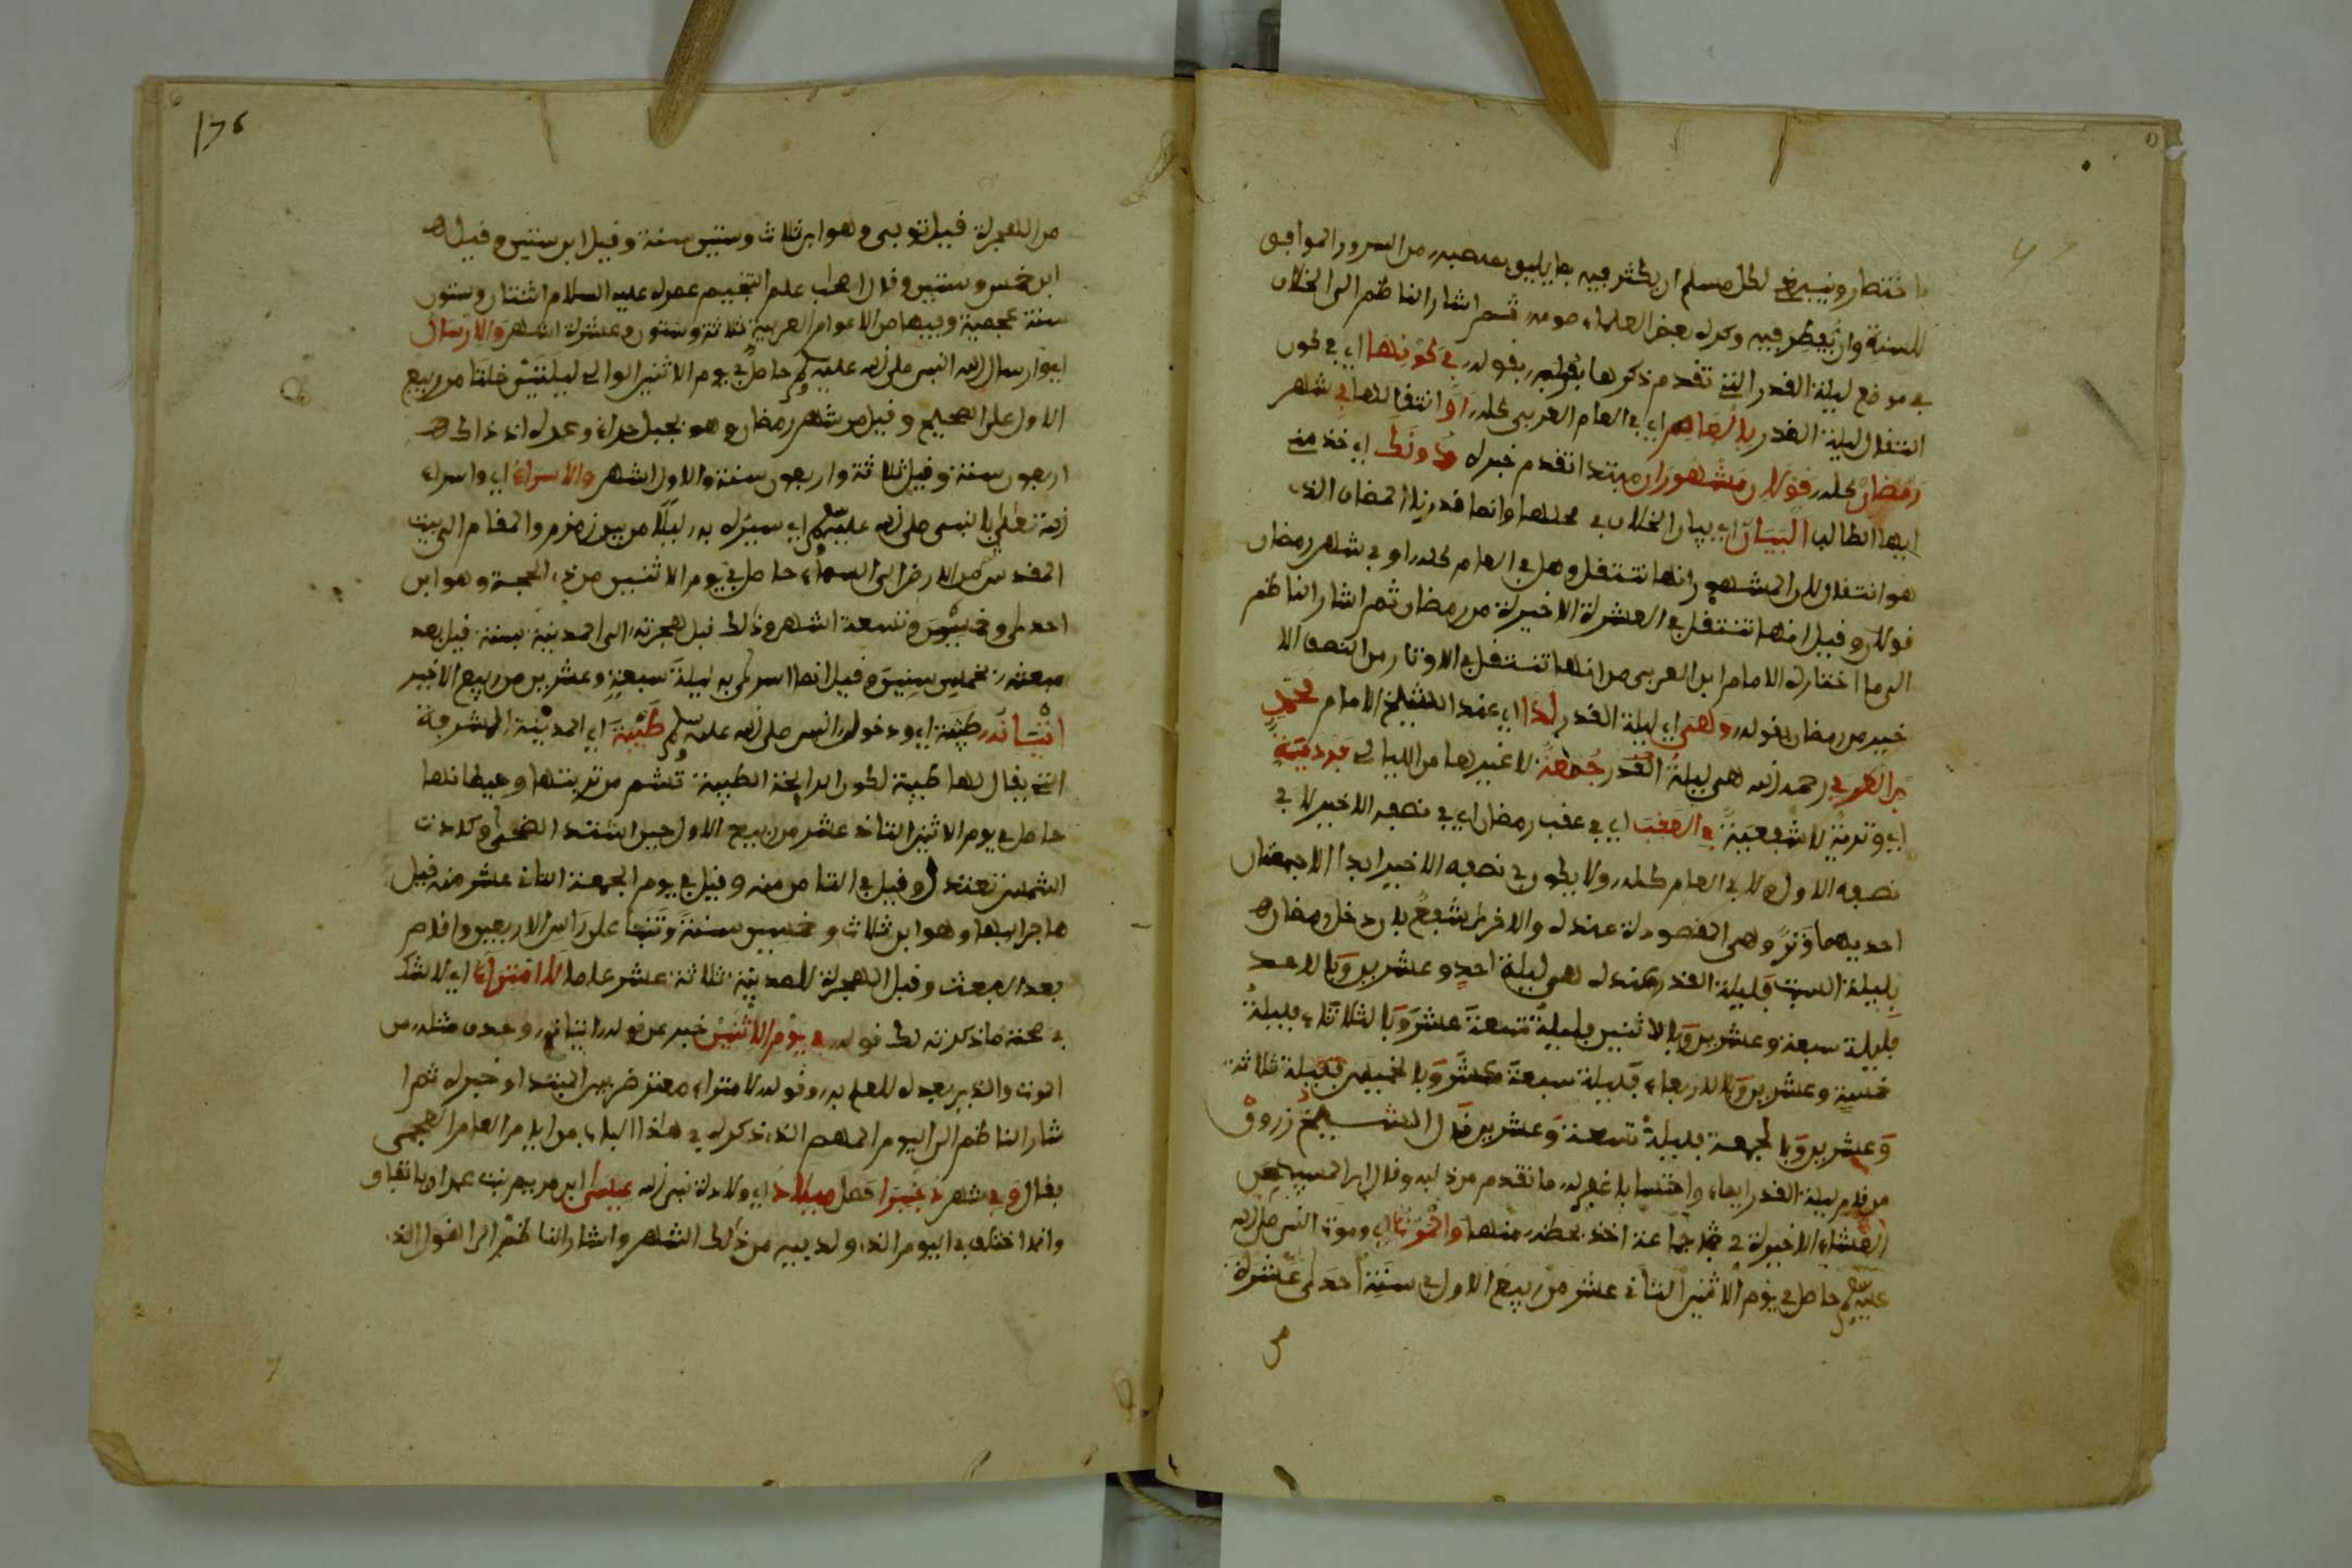 باختصار وينبغي لكل مسلم ان يكثر فيه بما يليق بمنصبه من السرور الموافق
للسنة وان يفطر فيه وكره بعض العلماء صومه ثم اشار الناظم الى الخلاف
في موضع ليلة القدر التي تقدم ذكرها بقوله في كونها اي في كون
انتقال ليلة القدر بالعام اي في العام العربي كله او انتقالها في شهر
رمضان كله قولان مشهوران مبتدا تقدم خبره دونك اي خذ منه
ايها الطالب البيان اي بيان الخلاف في محلها وانما قدرنا المضاف الذي
هو انتقال لان المشهور انها تنتقل وهل في العام كله او في شهر رمضان
قولان وقيل انها تنتقل في العشرة الاخيرة من رمضان ثم اشار الناظم
الى ما اختاره الامام ابن العربي من انها تنتقل في الاوتار من النصف الا
خير من رمضان بقوله وهي اي ليلة القدر لدا اي عند الشيخ الامام محمد
بن العربي رحمه الله هي ليلة القدر جمعة لا غيرها من الليالي فردية
اي وترية لا شفعية في العقب اي في عقب رمضان اي في نصفه الاخير لا في
نصفه الاول ولا في العام كله ولا يكون في نصفه الاخير ابدا الا جمعتان
احديهما وتر وهي المقصودة عنده والاخرى شفع فان دخل رمضان
بليلة السبت فليلة القدر عنده هي ليلة احد وعشرين وبالاحد
فليلة سبعة وعشرين وبالاثنين فليلة تسعة عشر وبالثلاثاء فليلة
خمسة وعشرين وبالاربعاء فليلة سبعة عشر وبالخميس فليلة ثلاثة
وعشرين وبالجمعة فليلة تسعة وعشرين قال الشيخ زروق
من قام ليلة القدر ايمانا واحتسابا غفر له ما تقدم من ذنبه وقال ابن المسيب من
العشاء الاخيرة في جماعة اخذ بحظه منها والموت اي وموت النبي صلى الله
عليه وسلم حاصل في يوم الاثنين الثاني عشر من ربيع الاول في سنة احدى عشرة
من
من الهجرة قيل توفي وهو ابن ثلاث وستين سنة وقيل ابن ستين وقيل
ابن خمس وستين وقال اصحاب علم التنجيم عمره عليه السلام اثنتان وستون
سنة عجمية وفيها من الاعوام العربية ثلاثة وستون وعشرة اشهر والارسال
اي وارسال الله النبي صلى الله عليه وسلم حاصل في يوم الاثنين الموالي لليلتين خلتا من ربيع
الاول على الصحيح وقيل من شهر رمضان وهو بجبل حراء وعمره اذ ذاك
اربعون سنة وقيل ثلاثة واربعون سنة والاول اشهر والاسراء اي واسراء
الله تعالى بالنبي صلى الله عليه وسلم اي سيره به ليلا من بين زمزم والمقام الى بيت
المقدس ثم من الارض الى السماء حاصل في يوم الاثنين من ذي الحجة وهو ابن
احدى وخمسين وتسعة اشهر وذلك قبل هجرته الى المدينة بسنة قيل بعد
مبعثه بخمس سنين وقيل انما اسري به ليلة سبعة وعشرين من ربيع الاخير
اتيانه طيبة اي ودخول النبي صلى الله عليه وسلم طيبة اي المدينة المشرفة
التي يقال لها طيبة لكون الرايحة الطيبة تشم من تربتها وحيطانها
حاصل في يوم الاثنين الثاني عشر من ربيع الاول حين اشتد الضحى وكادت
الشمس تعتدل وقيل في الثامن منه وقيل في يوم الجمعة الثاني عشر منه قيل
هاجر اليها وهو ابن ثلاث وخمسين سنة وتنبا على راس الاربعين واقام
بعد المبعث وقبل الهجرة للمدينة ثلاثة عشر عاما لا امتراء اي لا شك
في صحة ما ذكرته لك قوله في يوم الاثنين خبر عن قوله اتيانه وحذف مثله من
الموت والذين بعده للعلم به وقوله لا امتراء معترض بين المبتدا وخبره ثم ا
شار الناظم الى اليوم المهم الذي ذكره في هذا الباب من ايام العام العجمي
فقال وفي شهر دجنبر احصل ميلاد اي ولادة نبي الله عيسى ابن مريم بنت عمران باتفاق
وانما اختلف في اليوم الذي ولد فيه من ذلك الشهر واشار الناظم الى القول الذي